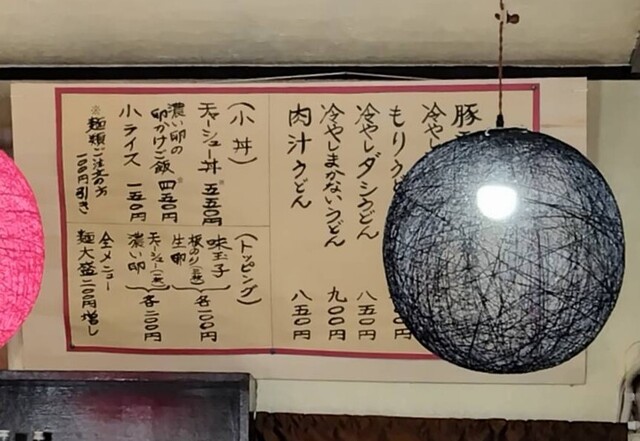 豚
冷やし
もりう
冷やしダシうどん 八五〇円
冷やしまかないうどん 九〇〇円
肉汁うどん 八五〇円
(小丼)
チャーシュー丼 五五〇円
濃い卵の
卵かけご飯 四五〇円
小ライス 一五〇円
※麺類ご注文の方
一〇〇円引き
(トッピング)
味玉子
板のり(三枚)
生卵
各一〇〇円
チャーシュー(二枚)
濃い卵
各二〇〇円
全メニュー
麺大盛二〇〇円増し